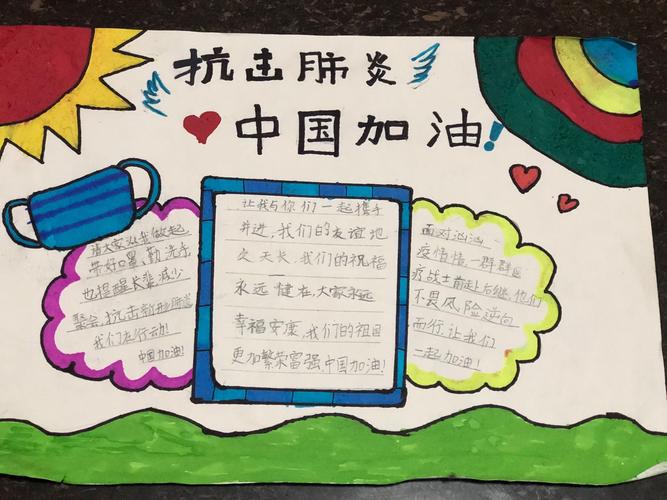 抗击肺炎
中国加油!
请大家从我做起
带好口罩,勤洗手
也提醒长辈,减少
聚会,抗击新形肺炎
我们在行动!
中国加油!
让我与你们一起携手
并进,我们的友谊地
久天长,我们的祝福
永远健在,大家永远
幸福安康,我们的祖国
更加繁荣富强,中国加油!
面对汹汹
疫情情,一群群医
疗战士前赴后继,他们
不畏风险逆向
而行,让我们
一起加油!